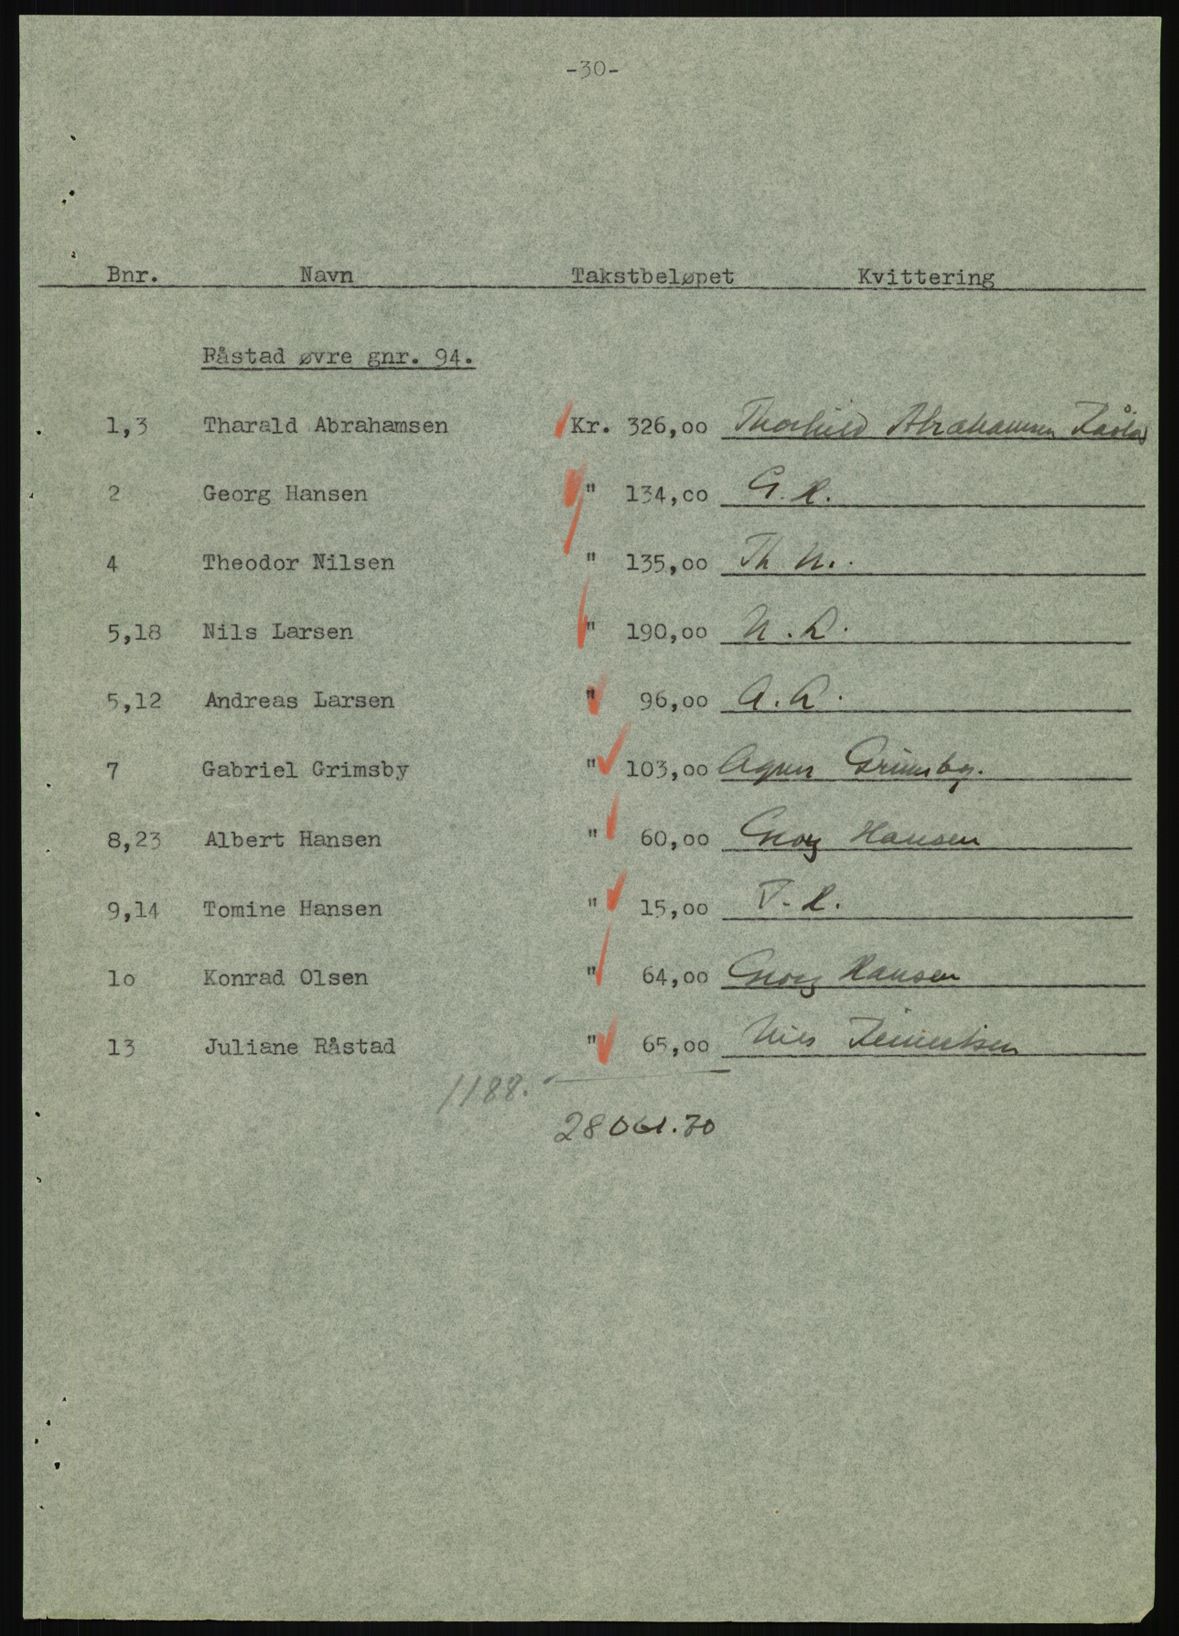 -30-
Bnr. Navn Takstbeløpet Kvittering
Råstad øvre gnr. 94.
1,3 Tharald Abrahamsen Kr. 326,oo Thorhild Abrahamsen Råstad
2 Georg Hansen " 134,oo G. H.
4 Theodor Nilsen " 135,oo Th N.
5,18 Nils Larsen " 190,oo N. L.
5,12 Andreas Larsen " 96,oo A. L.
7 Gabriel Grimsby " 103,oo Agnes Grimsby.
8,23 Albert Hansen " 60,oo Georg Hansen
9,14 Tomine Hansen " 15,oo T. H.
lo Konrad Olsen " 64,oo Georg Hansen
13 Juliane Råstad " 65,oo Nils
1188.-
28061.70